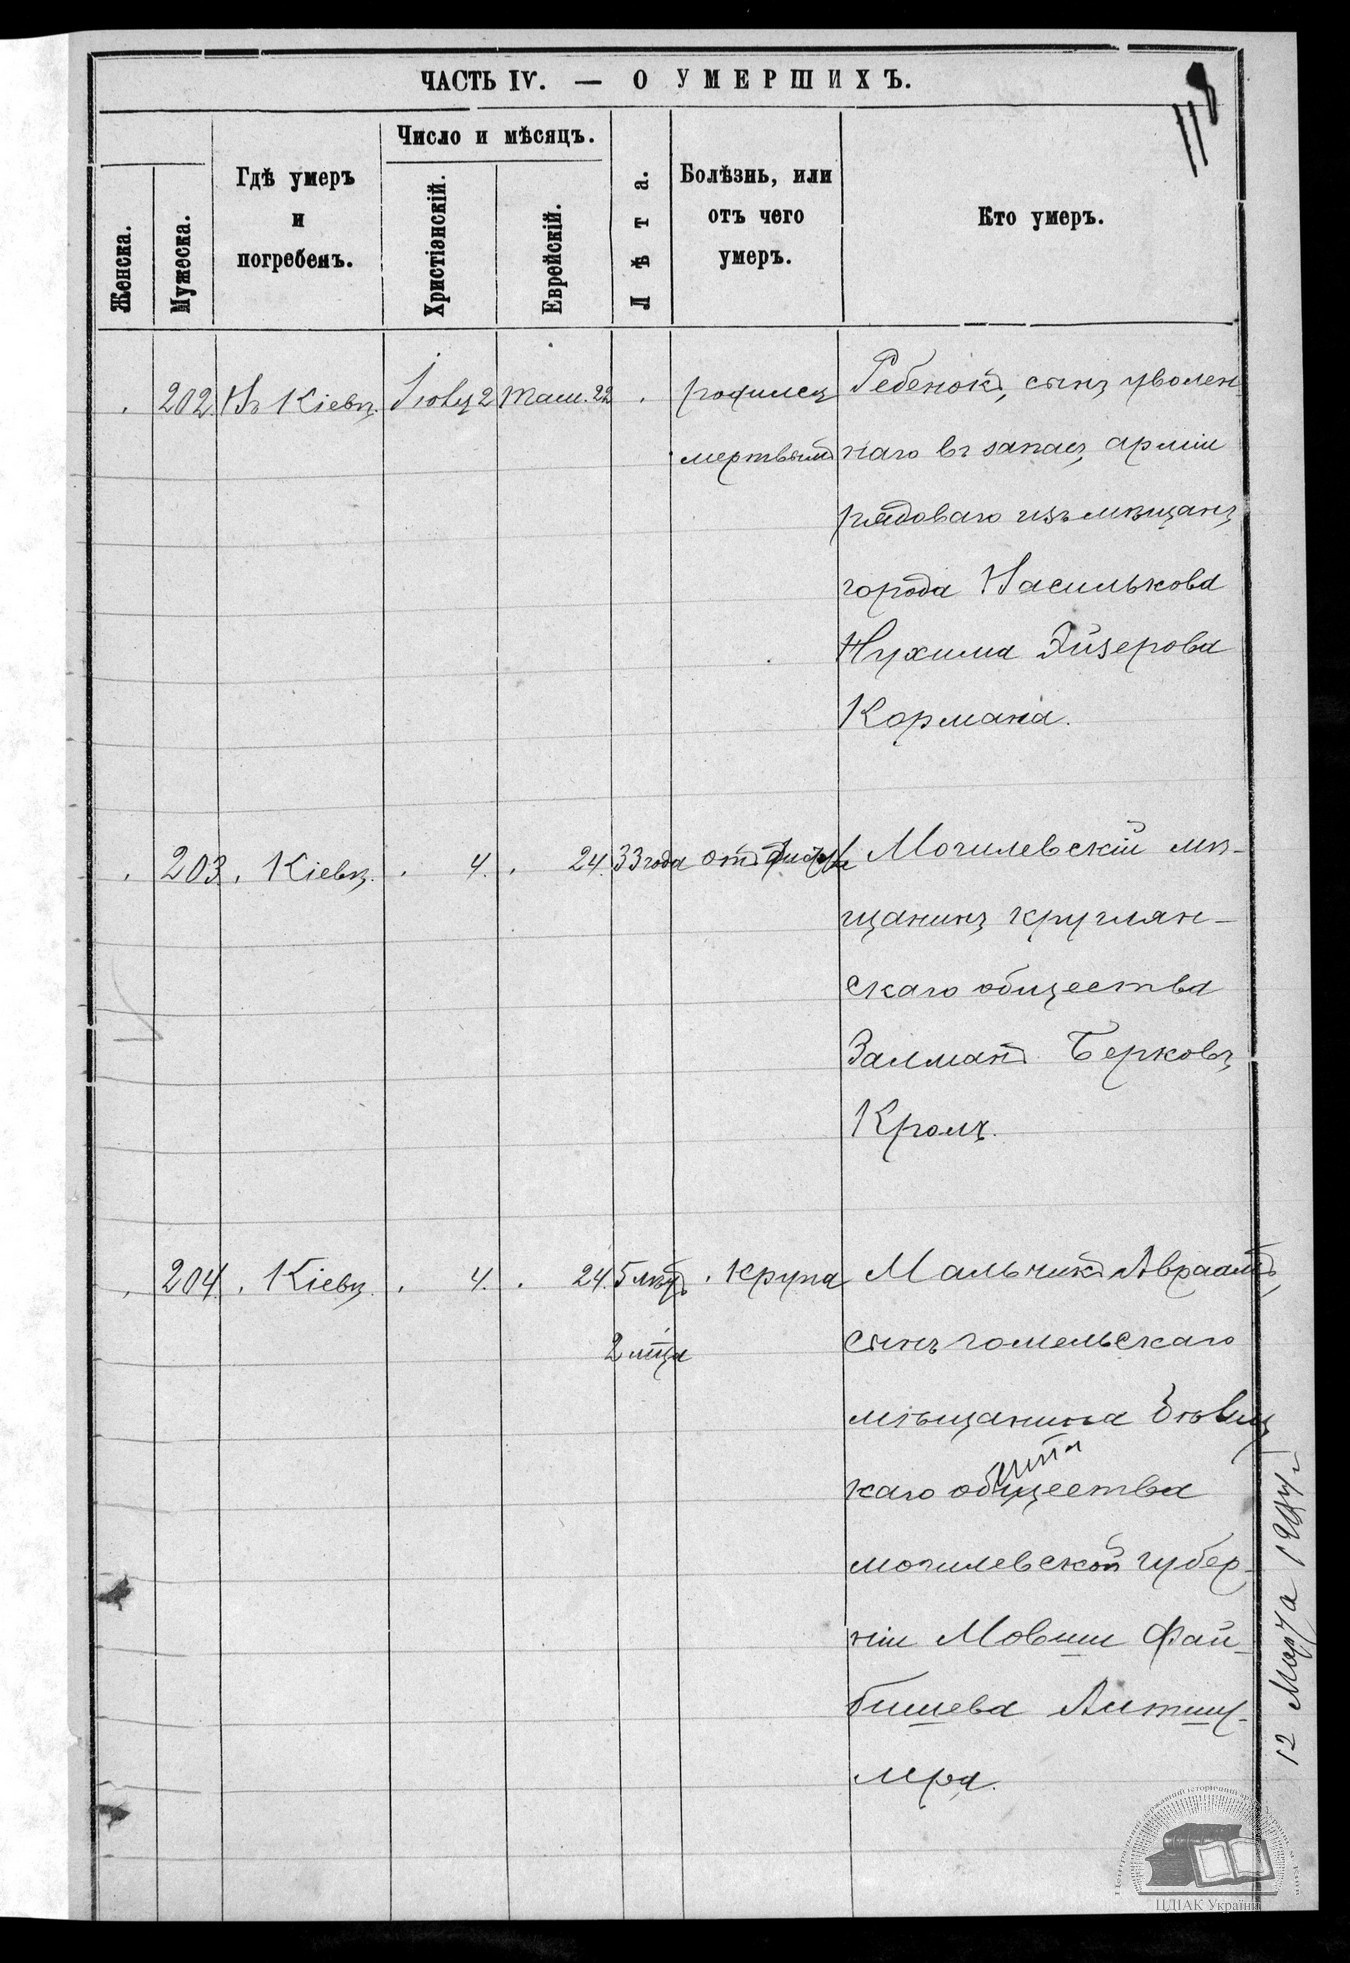 ЧАСТЬ IV. — О УМЕРШИХЪ.
118
Женска.
Мужеска.
Гдѣ умеръ и погребенъ.
Число и мѣсяцъ.
Христіанскій.
Еврейскій.
Лѣта.
Болѣзнь, или отъ чего умеръ.
Кто умеръ.
202 Въ Кіевѣ Іюля 2 Там. 22 родился Ребенокъ, сынъ уволен-
мертвымъ наго въ запасъ арміи
рядоваго изъ мѣщанъ
города Василькова
Нухима Эйзерова
Кормана.
203 Кіевѣ 4. 24. 33 года отъ Могилевскій мѣ-
щанинъ круглян-
скаго общества
Залманъ Берковъ
Кролъ.
204 Кіевѣ 4. 24. 5 лѣтъ крупа Мальчикъ Авраамъ,
2 мца сынъ гомельскаго
мѣщанина
каго общества
могилевской губер-
ніи Мовши Фай-
бишева Альтшу-
лера.
12 Марта
ЦДІАК України